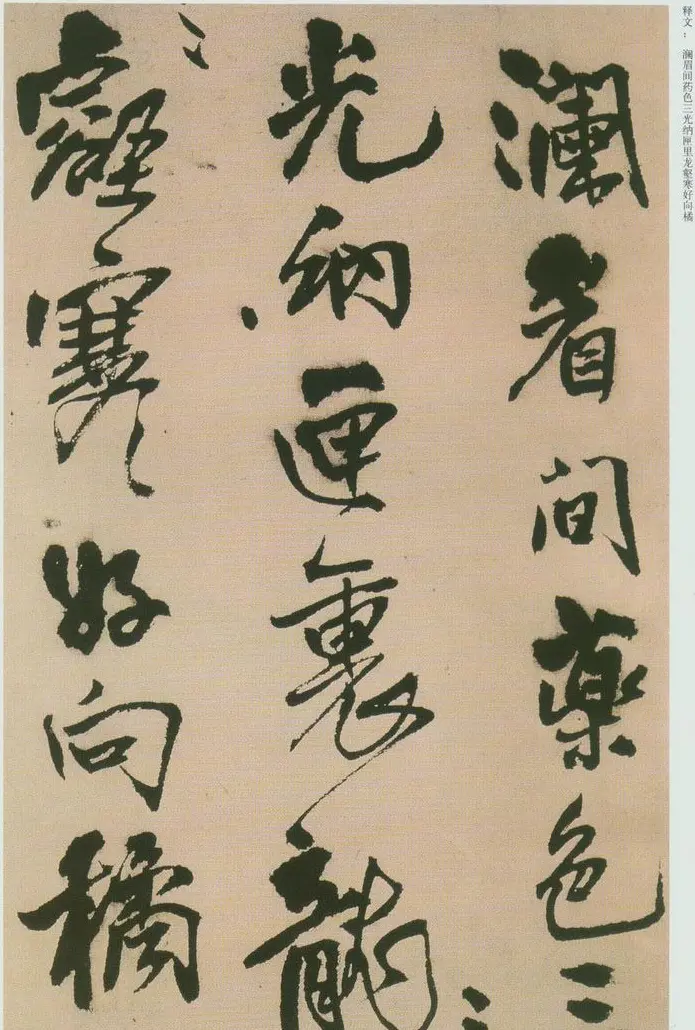 释文： 澜眉间药色三光纳匣里龙壑寒好向橘
瀾眉間藥色三
光納匣裏龍
壑寒好向橘